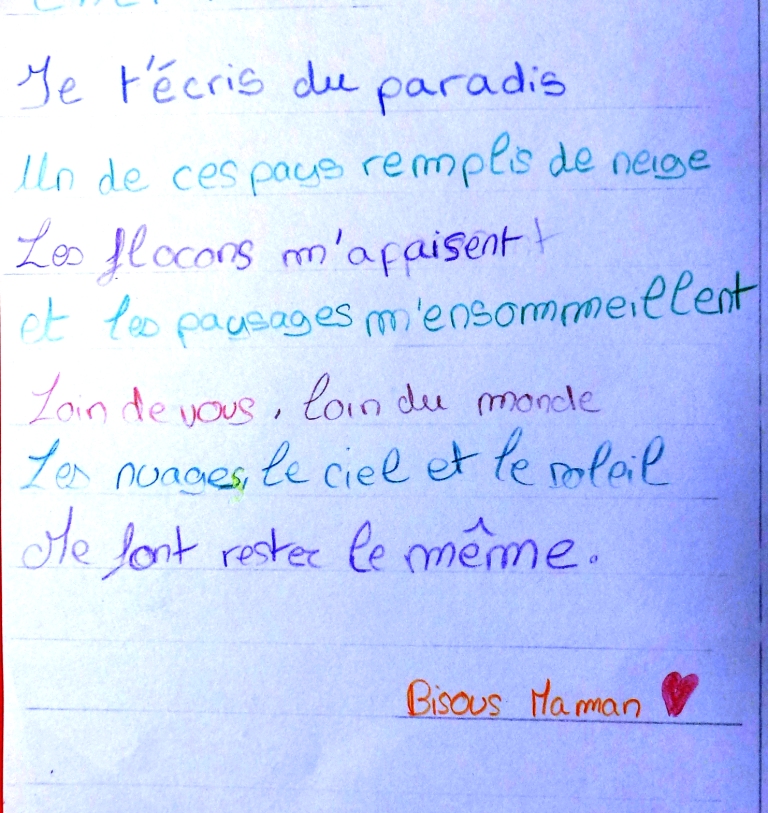 Je t'écris du paradis
Un de ces pays remplis de neige
Les flocons m'apaisent
et les paysages m'ensommeillent
Loin de vous, loin du monde
Les nuages, le ciel et le soleil
Me font rester le même.
Bisous Maman